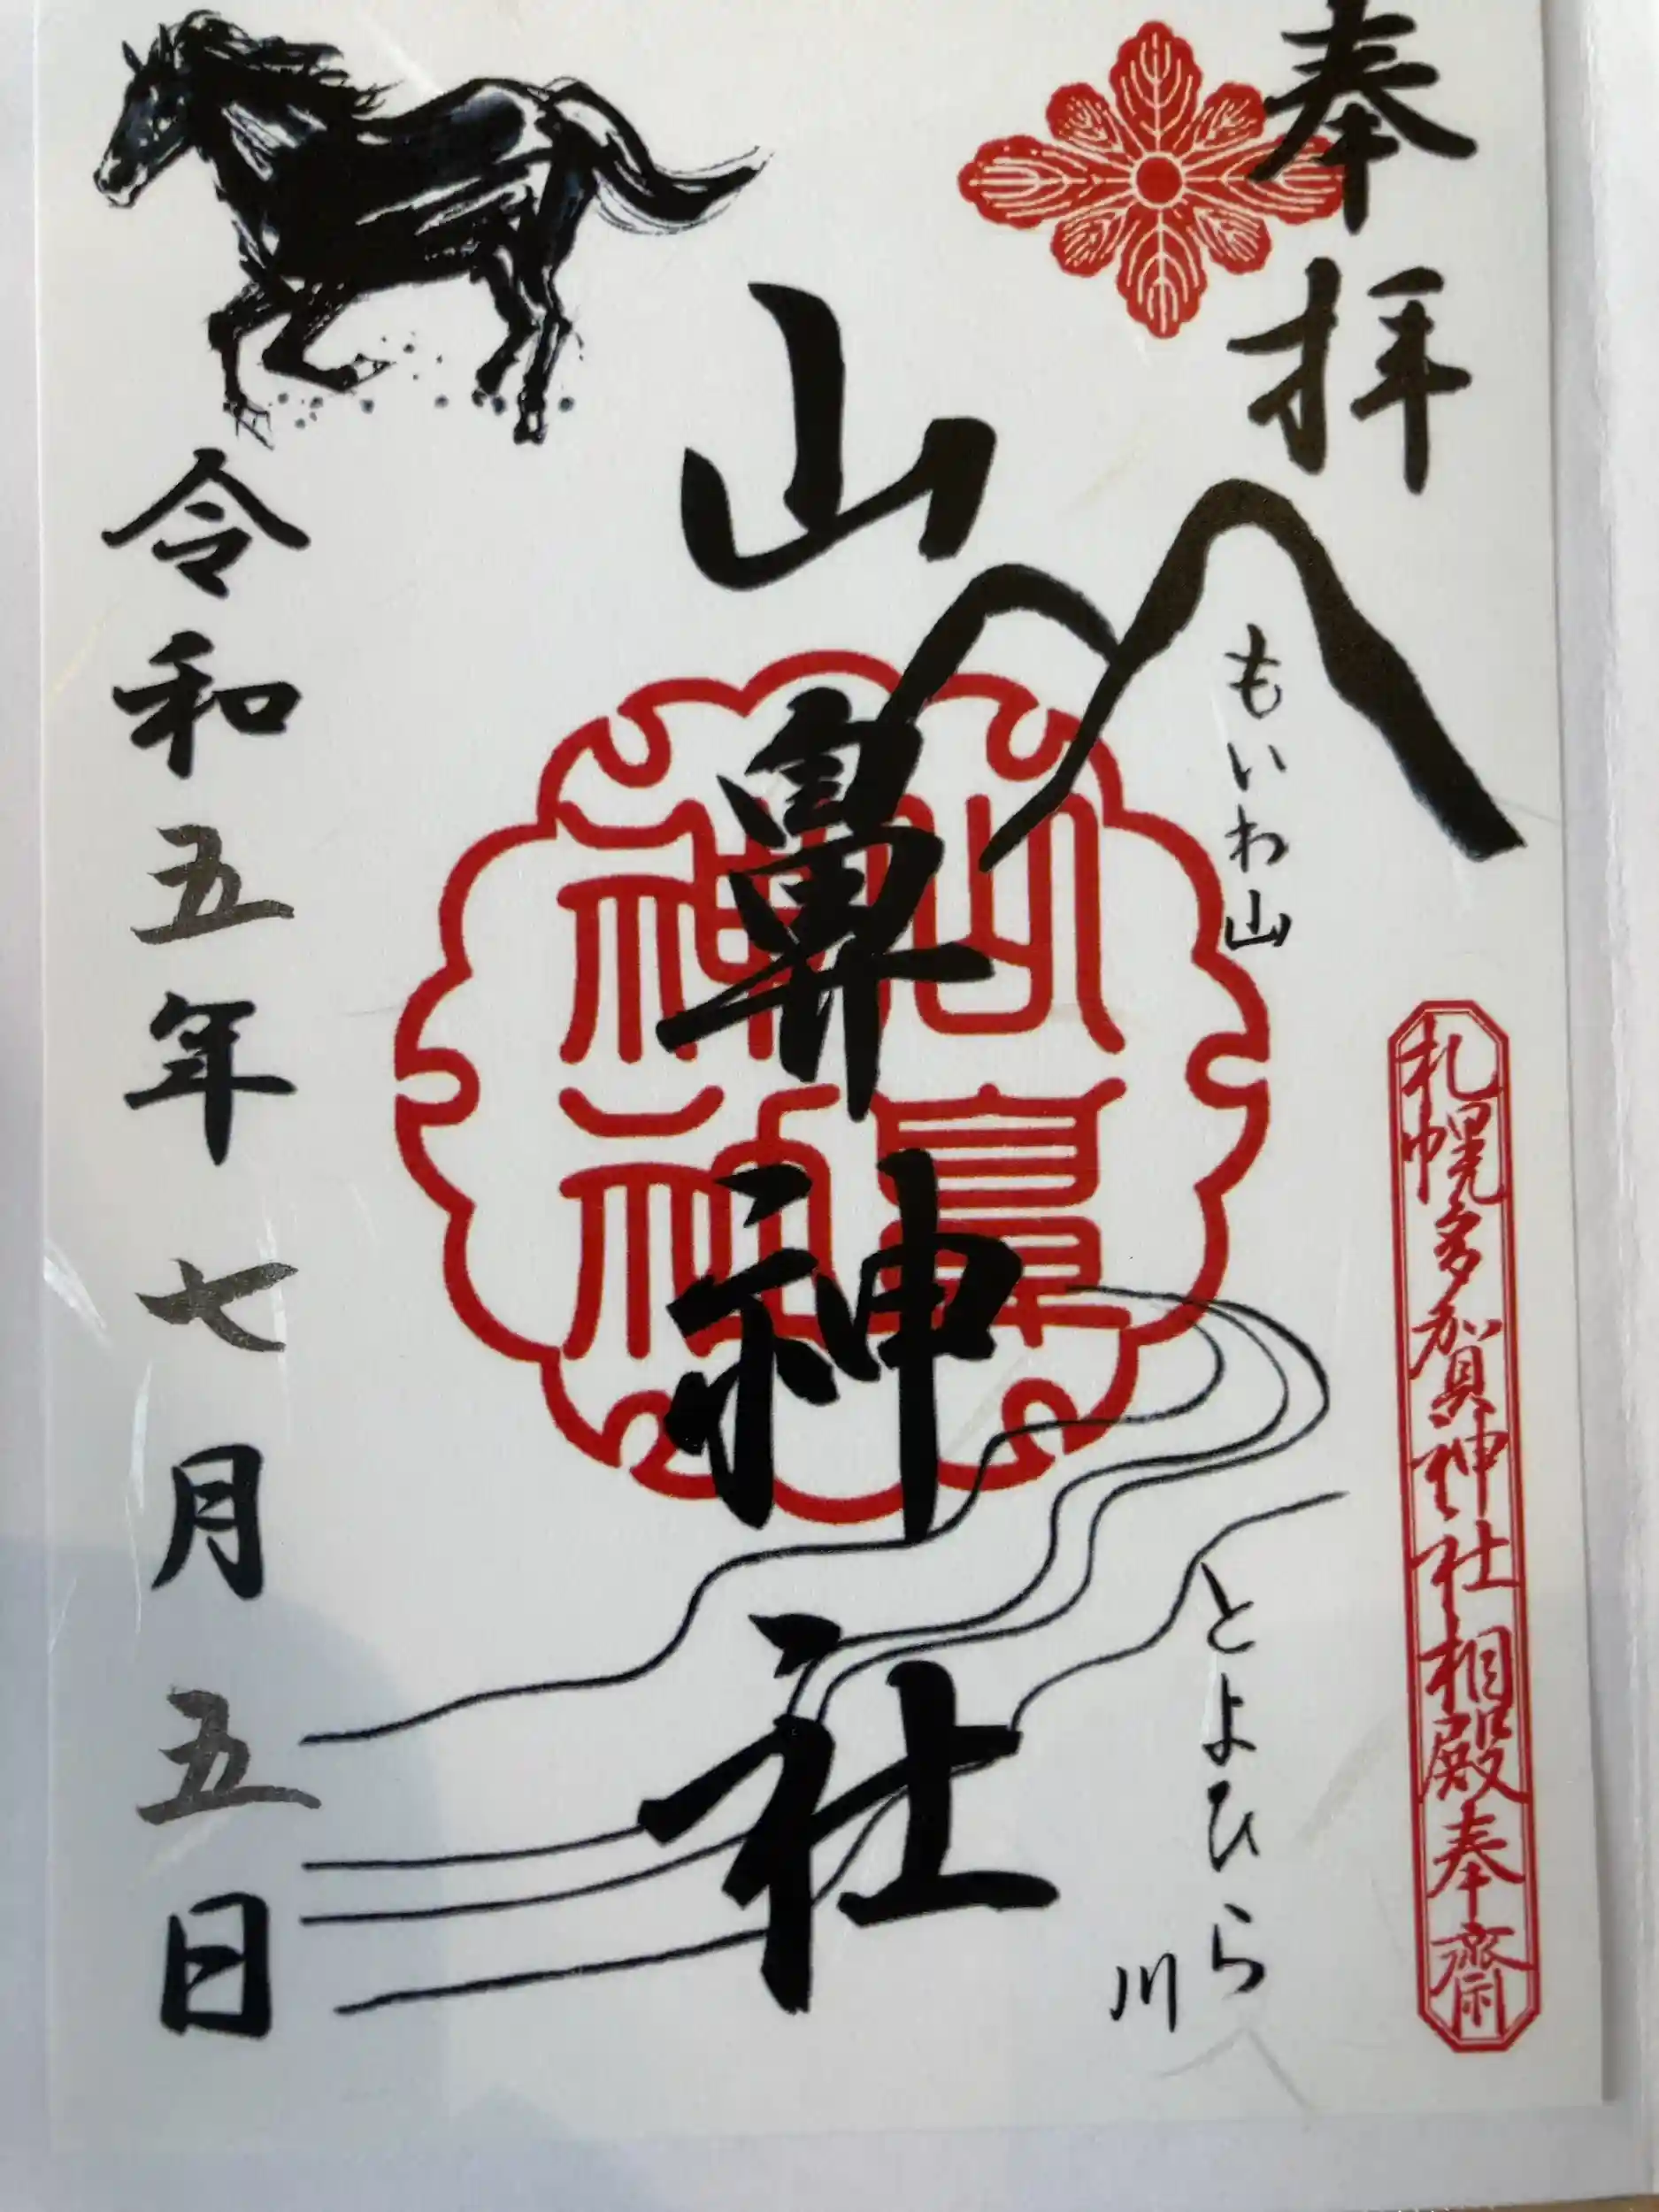 奉拝
もいわ山
とよひら
川
札幌多賀神社相殿奉齋
山鼻神社
山鼻神社
令和五年七月五日